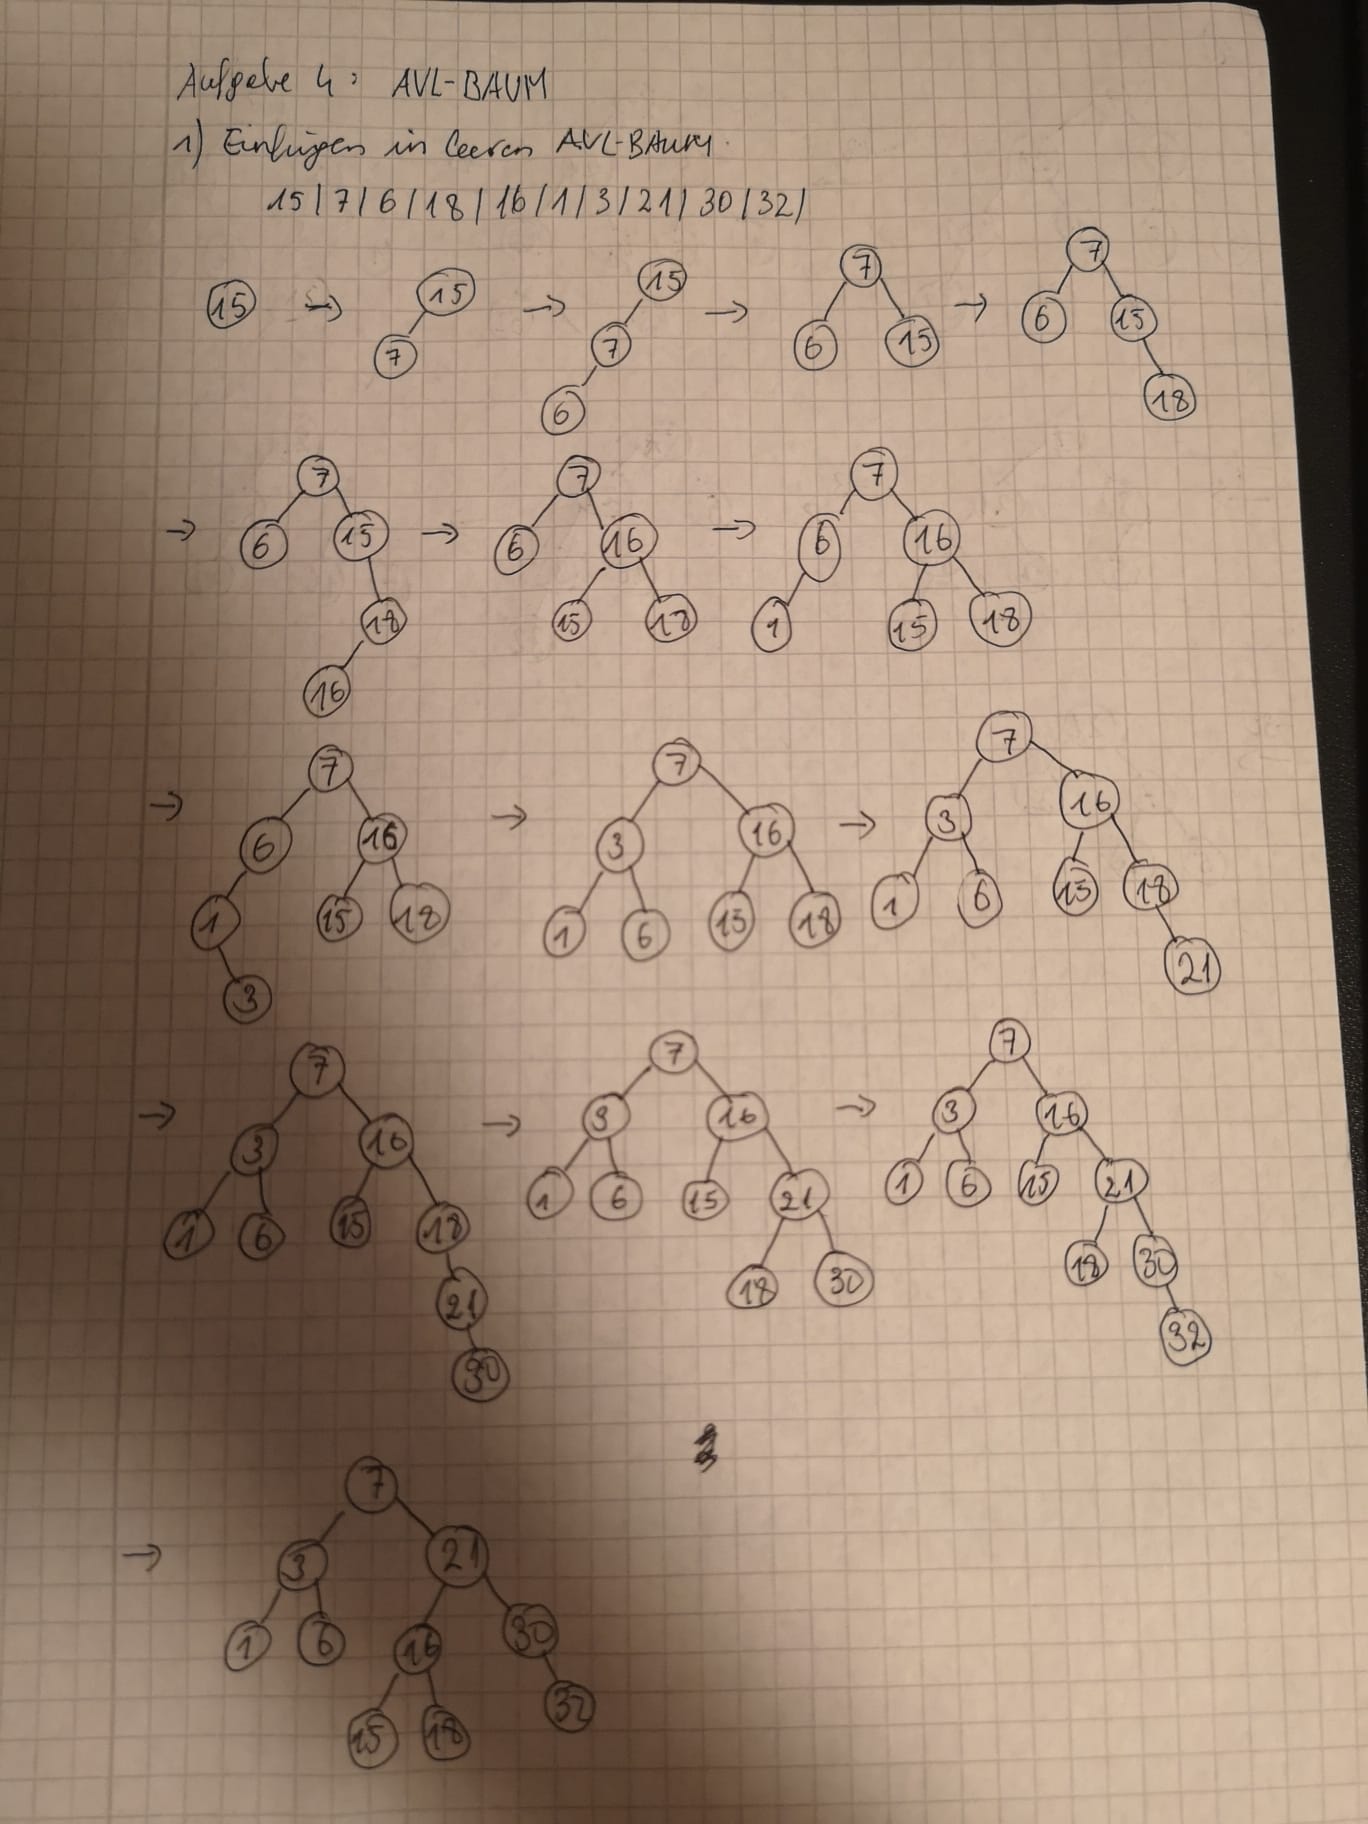 Aufgabe 4: AVL-BAUM
1) Einfügen in leeren AVL-BAUM.
15/7/6/18/16/1/3/21/30/32/
15 → 15 7 → 15 7 6 → 7 6 15 → 7 6 15 18
→ 7 6 15 18 16 → 7 6 16 15 18 → 7 6 16 1 15 18
→ 7 6 16 1 15 18 3 → 7 3 16 1 6 15 18 → 7 3 16 1 6 15 18 21
→ 7 3 16 1 6 15 18 21 30 → 7 3 16 1 6 15 21 18 30 → 7 3 16 1 6 15 21 18 30 32
→ 7 3 21 1 6 16 30 15 18 32